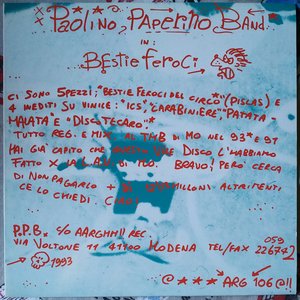 PAOLINO PAPERINO BAND
IN:
BESTIE FEROCI
CI SONO SPEZZI: "BESTIE FEROCI DEL CIRCO" (PISLAS) E
4 INEDITI SU VINILE: "ICS", "CARABINIERE" "PATATA
MALATA" E "DISCTECARO"
TUTTO REG. E MIX. AL THB DI MO NEL 93* E 91
HAI GIÀ CAPITO CHE QUESTO DISCO L'ABBIAMO
FATTO X DI BRAVO! PERÒ CERCA
DI NON PAGARLO + DI MILLONI ALTRIMENTI
CE LO CHIEDI. CIAO!
P.P.B. c/o AARGH!! REC.
VIA VOLTONE 11 41100 MODENA TEL/FAX 059
226742
1993
@ **** ARG 106 @!!